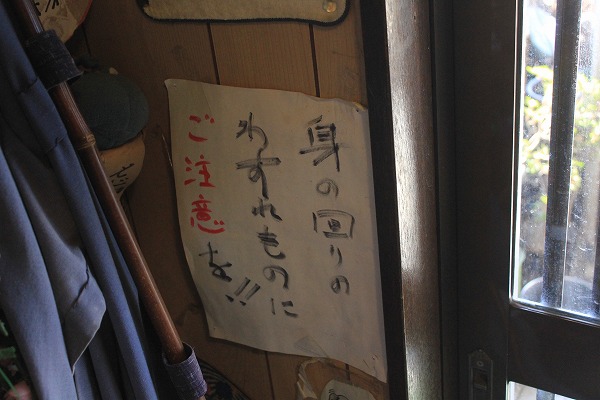 身の回りの
わすれものに
ご注意を!!